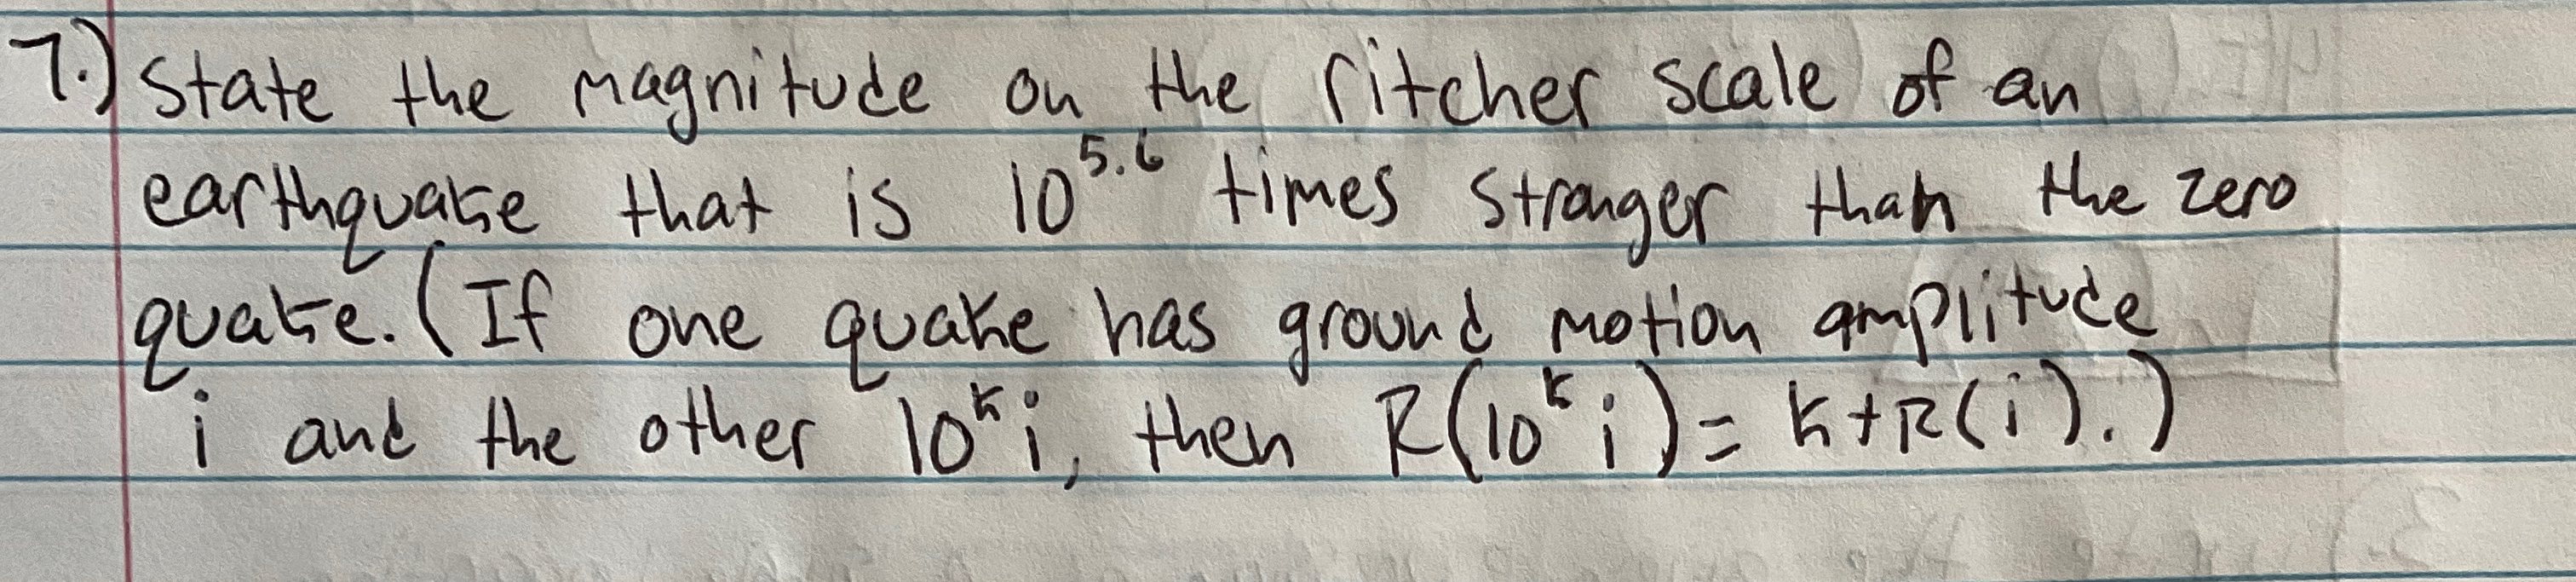 7.) State the magnitude on the ritcher scale of an
earthquake that is 10^5.6 times stronger than the zero
quake. (If one quake has ground motion amplitude
i and the other 10^k i, then R(10^k i) = k+R(i).)